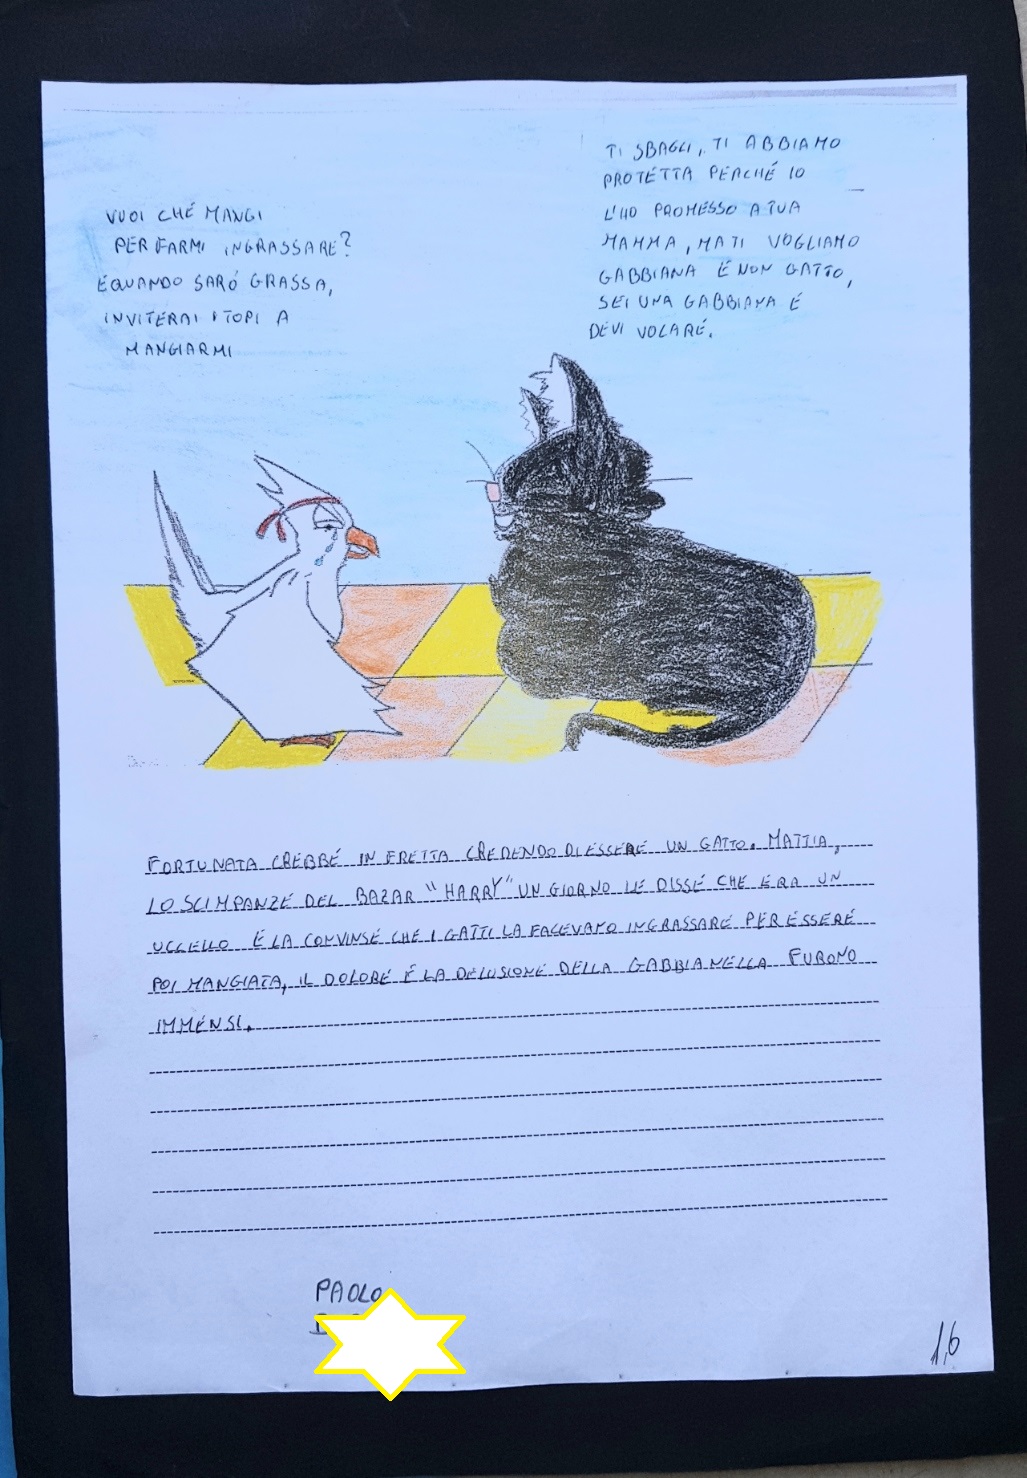 VUOI CHÉ MANGI
PER FARMI INGRASSARE?
E QUANDO SARÓ GRASSA,
INVITERAI I TOPI A
MANGIARMI
TI SBAGLI, TI ABBIAMO
PROTÉTTA PERCHÉ IO
L'HO PROMESSO A TUA
MAMMA, MA TI VOGLIAMO
GABBIANA É NON GATTO,
SEI UNA GABBIANA É
DÉVI VOLARÉ.
FORTUNATA CREBBÉ IN FRETTA CREDENDO DI ESSERE UN GATTO. MATTIA,
LO SCIMPANZÉ DEL BAZAR "HARRY" UN GIORNO LE DISSÉ CHE ERA UN
UCCELLO É LA CONVINSÉ CHE I GATTI LA FACEVANO INGRASSARE PER ESSERÉ
POI MANGIATA, IL DOLORÉ É LA DELUSIONÉ DELLA GABBIANELLA FURONO
IMMÉNSI.
PAOLO
1,6